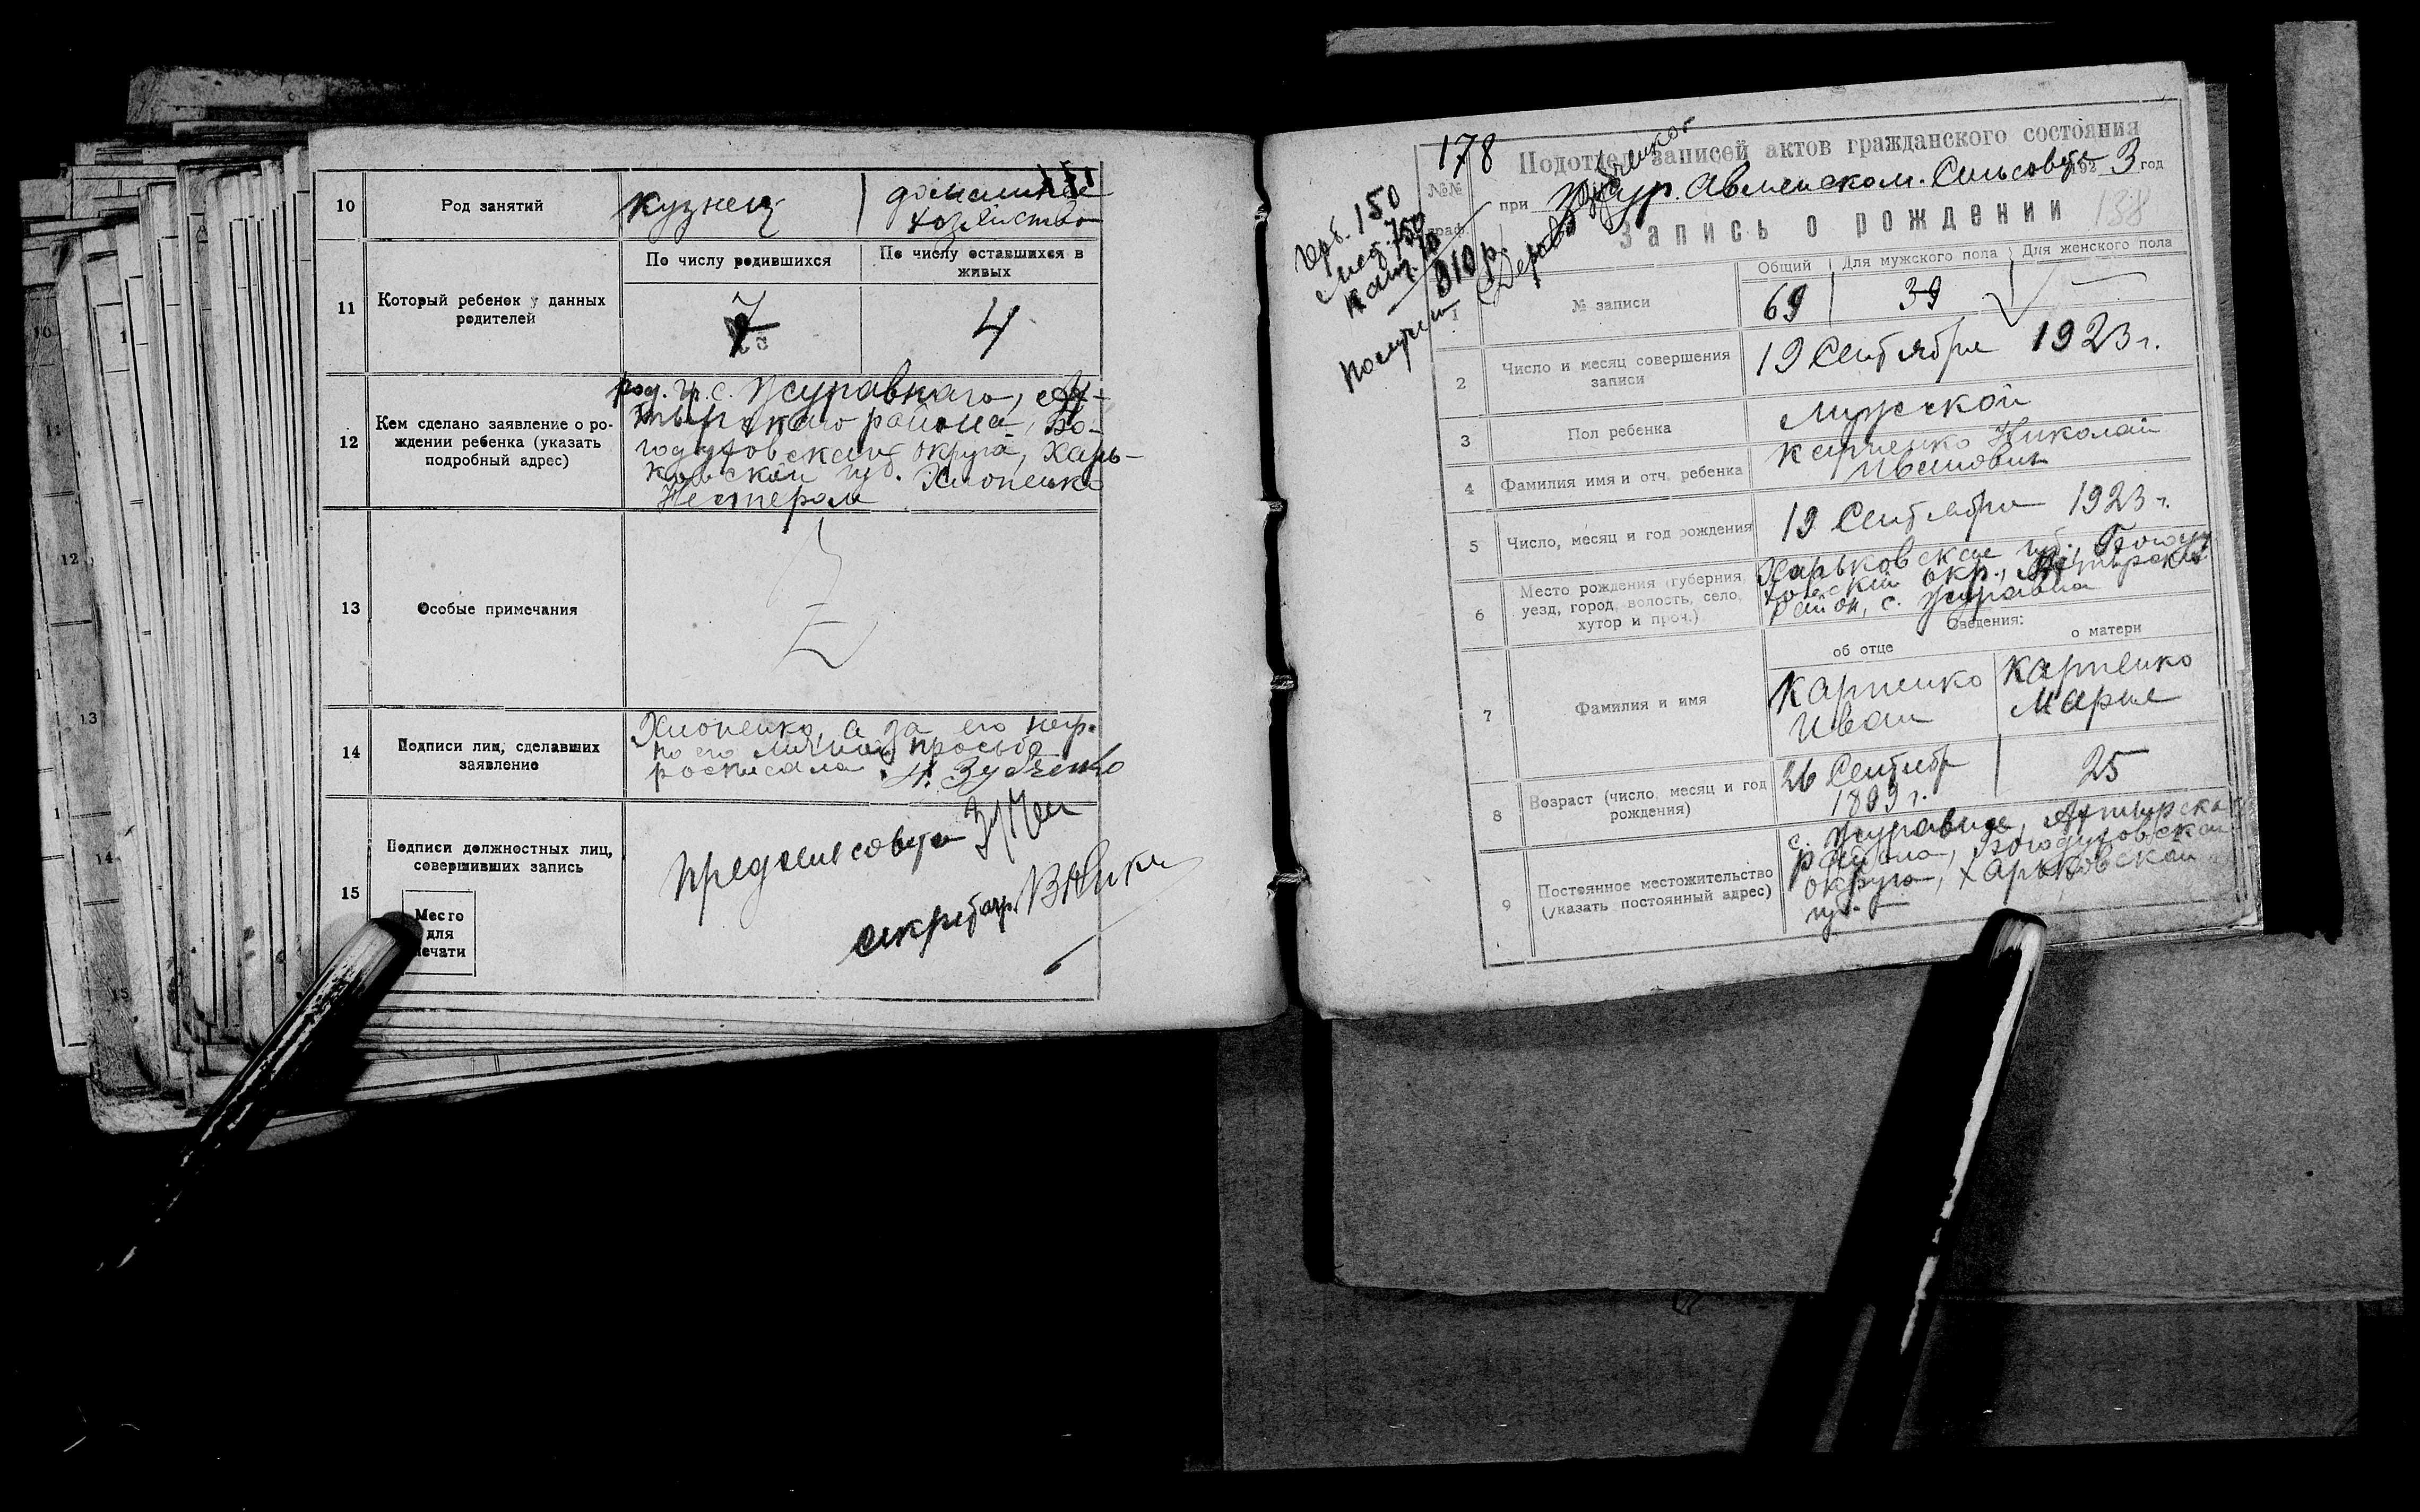 10 Род занятий кузнец домашнее
хозяйство
11 Который ребенок у данных
родителей
По числу родившихся
По числу оставшихся в
живых
7 4
12 Кем сделано заявление о ро-
ждении ребенка (указать
подробный адрес)
гр. с. Журавного, Ах-
тырского района, Бо-
годуховского округа, Харь-
ковской губ. Хлопенко
Нестером
13 Особые примечания
14 Подписи лиц, сделавших
заявление
Хлопенко, а за его негр.
по его личной просьбе
росписался Н. Зубченко
15 Подписи должностных лиц,
совершивших запись
Место
для
печати
Предсельсовета
секретарь
178
Герб. 150
750
Канц. 10
910 р.
получил
Подотдел записей актов гражданского состояния
при Журавленском Сельсовете 1923 год
Запись о рождении
138
№№
граф.
1 № записи
Общий Для мужского пола Для женского пола
69 39 —
2 Число и месяц совершения
записи
19 Сентября 1923 г.
3 Пол ребенка Мужской
4 Фамилия имя и отч. ребенка Карпенко Николай
Иванович
5 Число, месяц и год рождения 19 Сентября 1923 г.
6 Место рождения (губерния,
уезд, город, волость, село,
хутор и проч.)
Харьковская губ., Богоду
ховский окр., Ахтырский
район, с. Журавна
Сведения:
об отце о матери
7 Фамилия и имя
Карпенко
Иван
Карпенко
Мария
8 Возраст (число, месяц и год
рождения)
26 Сентябр
1899 г.
25
9 Постоянное местожительство
(указать постоянный адрес)
с. Журавна, Ахтырска
района, Богодуховскаго
округа, Харьковской
губ.